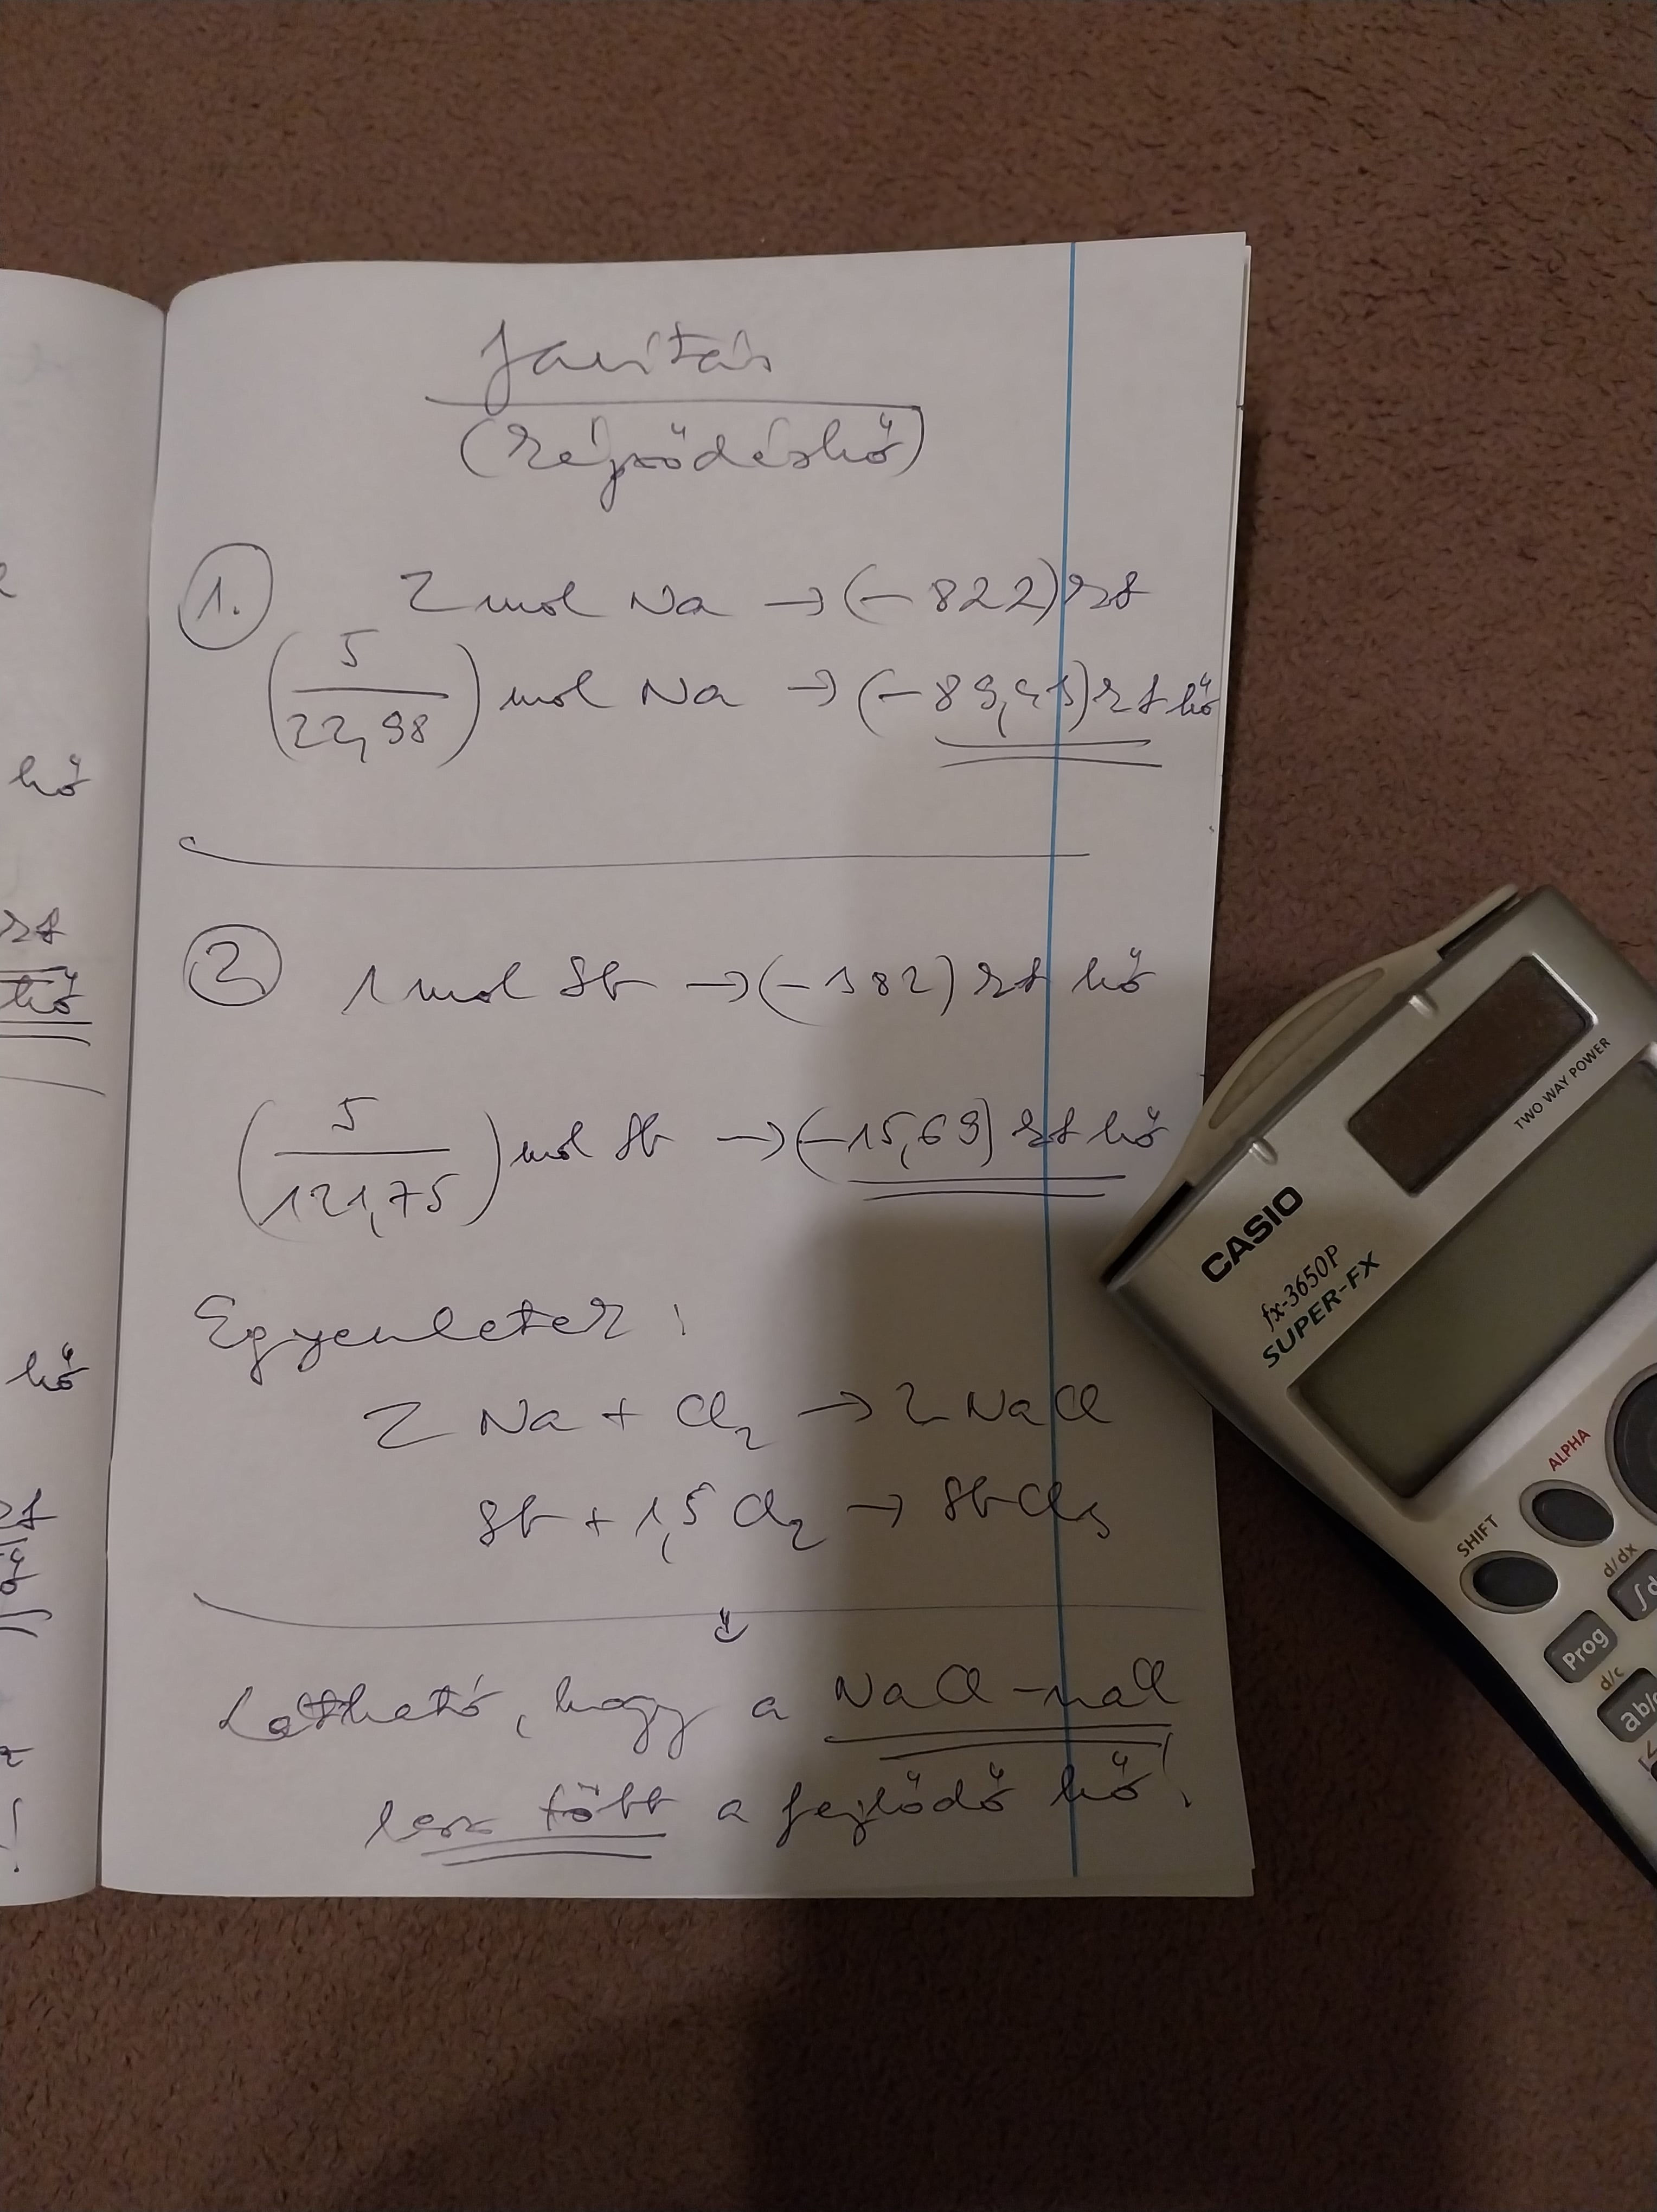 Javítás
(képződéshő)
1.
2 mol Na → (-822) kJ
(5/22,98) mol Na → (-89,43) kJ hő
2
1 mol Sb → (-382) kJ hő
(5/121,75) mol Sb → (-15,69) kJ hő
Egyenletek:
2 Na + Cl₂ → 2 NaCl
Sb + 1,5 Cl₂ → SbCl₃
Látható, hogy a NaCl-nál
lesz több a fejlődő hő!
hő
kJ
hő
hő
kJ
TWO WAY POWER
CASIO
fx-3650P
SUPER-FX
ALPHA
SHIFT
d/dx
Prog
d/c